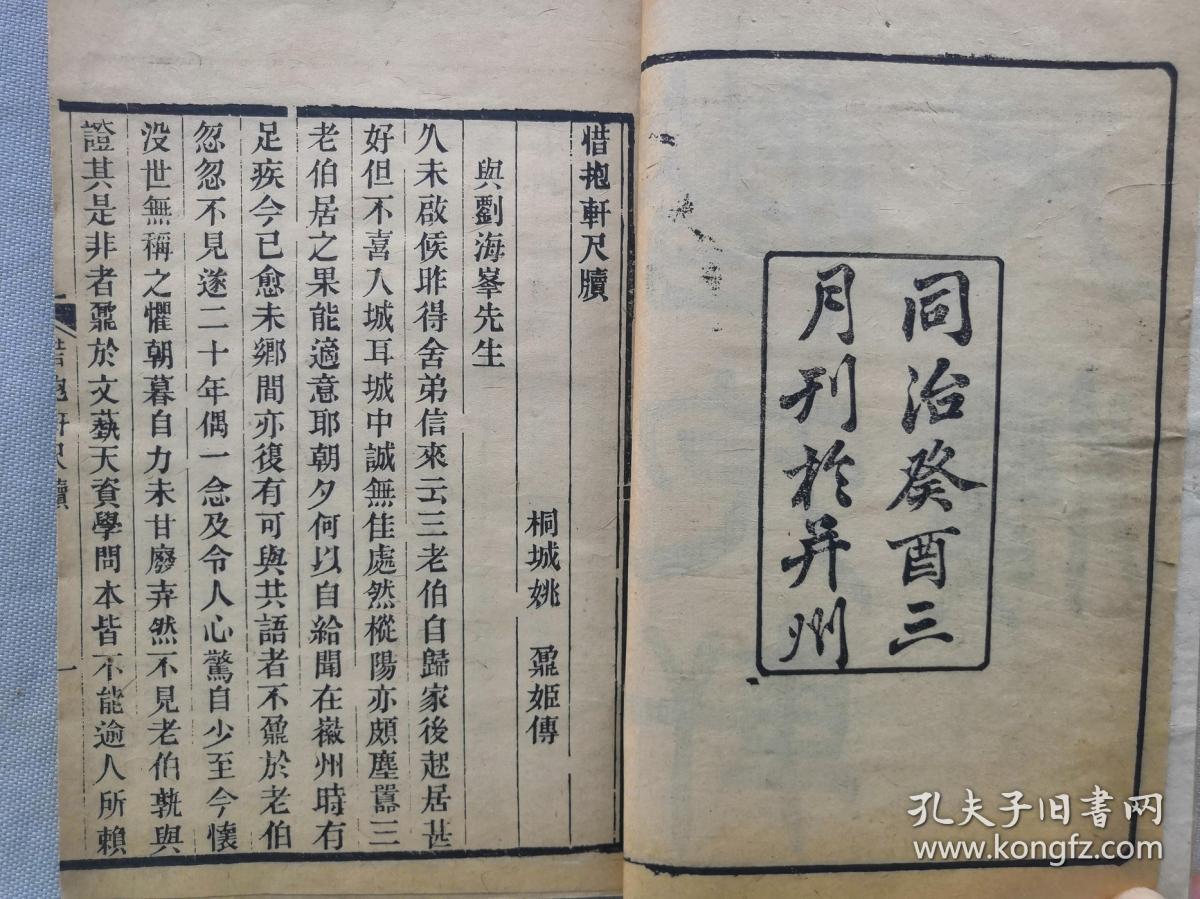 同治癸酉三
月刊於并州
惜抱軒尺牘
桐城姚　鼐姬傳
與劉海峯先生
久未啟候昨得舍弟信來云三老伯自歸家後起居甚
好但不喜入城耳城中誠無佳處然樅陽亦頗塵囂三
老伯居之果能適意耶朝夕何以自給聞在徽州時有
足疾今已愈未鄉間亦復有可與共語者不鼐於老伯
忽忽不見遂二十年偶一念及令人心驚自少至今懷
没世無稱之懼朝暮自力未甘廢弃然不見老伯孰與
證其是非者鼐於文藝天資學問本皆不能逾人所賴
惜抱軒尺牘
一
孔夫子旧书网
www.kongfz.com